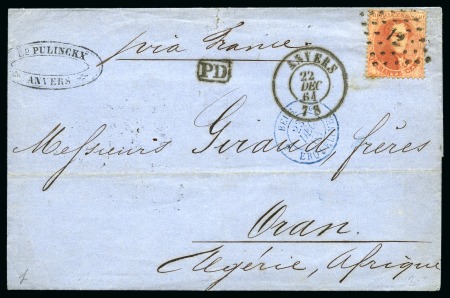 via France.
Ed. PULINCKX
ANVERS
PD
ANVERS
22
DEC
64
7-8
12
Messieurs Giraud frères
Oran
Algérie, Afrique